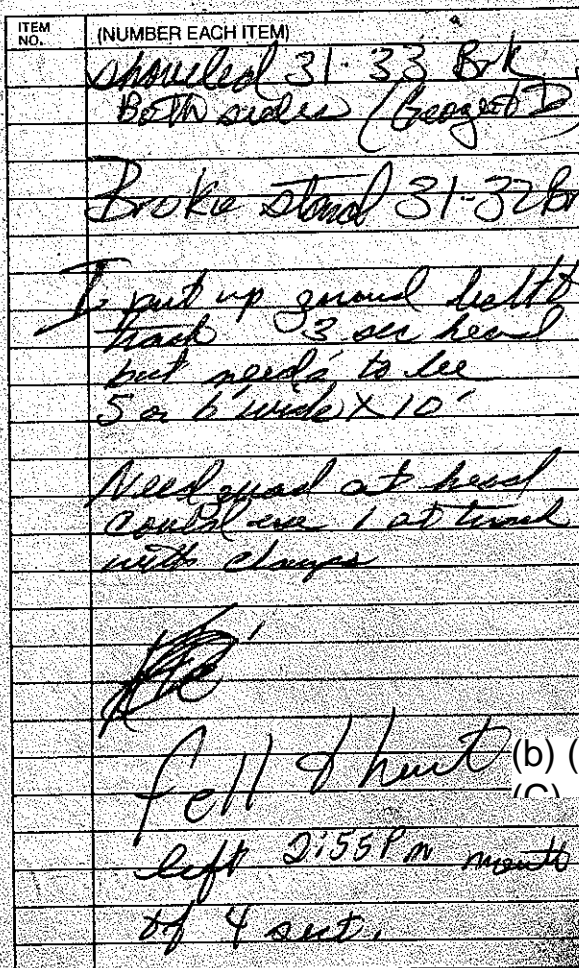 ITEM NO.
(NUMBER EACH ITEM)
shoveled 31-33 Brk
Both sides (George & D
Brokie stand 31-32 Br
I put up guard belt &
track 3 sec head
but needs to be
5 or 6' wide X 10'
Need guard at head
1 at
with clamps
fell & hurt (b) (
(C)
left 2:55 Pm mouth
of 4 sect.